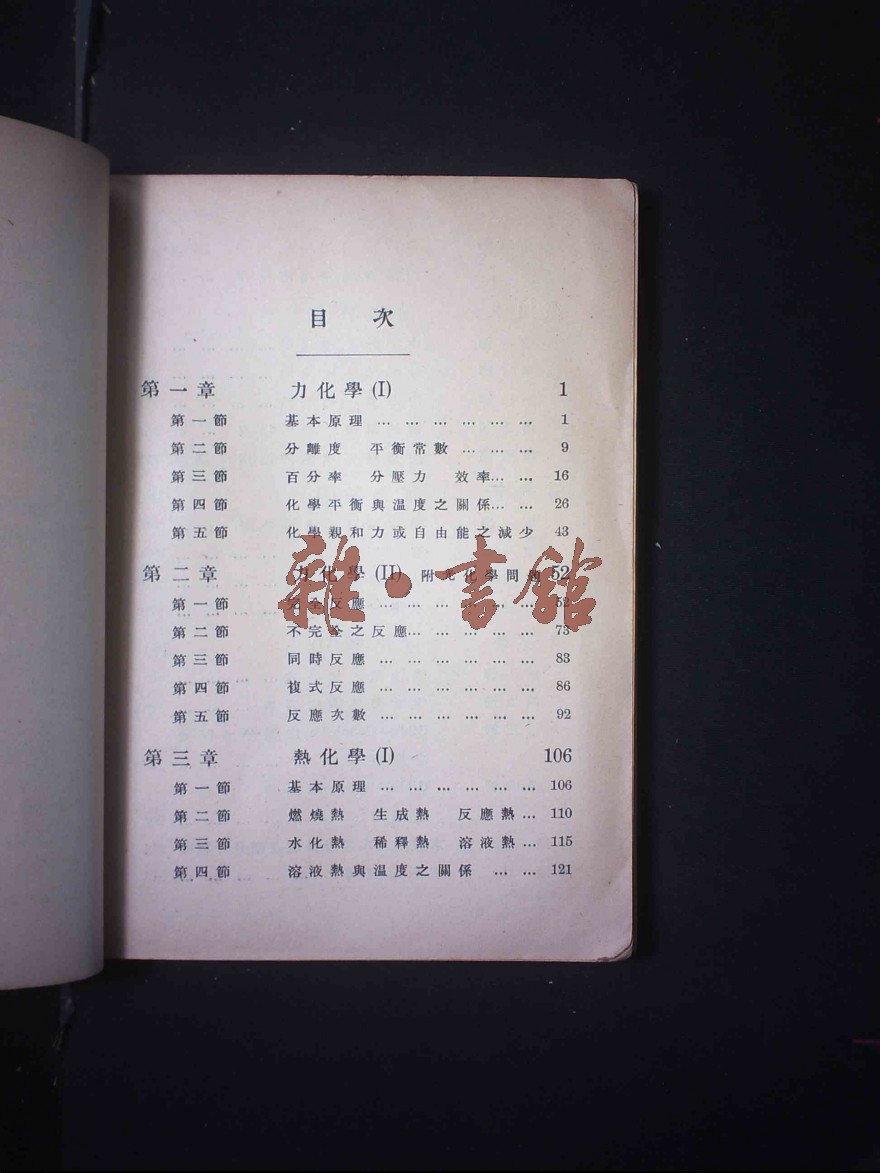 目次
第一章 力化學(I) 1
第一節 基本原理 … … … … … … 1
第二節 分離度 平衡常數 … … … 9
第三節 百分率 分壓力 效率… … 16
第四節 化學平衡與温度之關係… … 26
第五節 化學親和力或自由能之減少 43
第二章 力化學(II) 附光化學問題 52
第一節 完全反應 … … … … … … 52
第二節 不完全之反應… … … … … 73
第三節 同時反應 … … … … … … 83
第四節 複式反應 … … … … … … 86
第五節 反應次數 … … … … … … 92
第三章 熱化學(I) 106
第一節 基本原理 … … … … … … 106
第二節 燃燒熱 生成熱 反應熱… 110
第三節 水化熱 稀釋熱 溶液熱… 115
第四節 溶液熱與温度之關係 … … 121
雜·書館